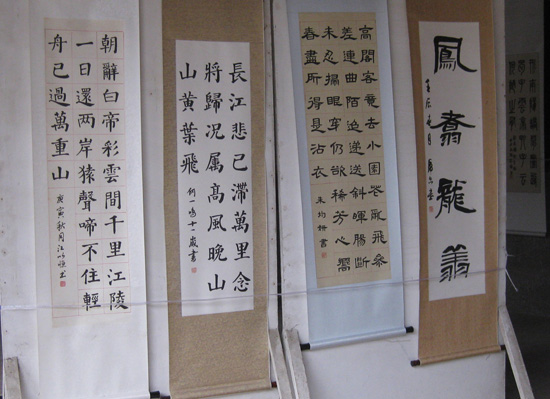 朝辭白帝彩雲間千里江陵
一日還兩岸猿聲啼不住輕
舟已過萬重山
庚寅秋月江
長江悲已滯萬里念
將歸况属高風晚山
山黄葉飛
何一鸣十一歲書
高閣客竟去小園花亂飛參
差連曲陌迢遞送斜暉腸斷
未忍掃眼穿仍欲稀芳心嚮
春盡所得是沾衣
書
鳳翥龍翔